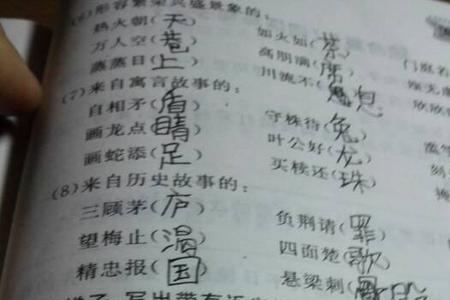 (6)形容繁荣兴盛景象的:
热火朝(天) 如火如(荼) 门庭若
万人空(巷) 高朋满(席)
蒸蒸日(上) 川流不(息) 欣欣
(7)来自寓言故事的:
自相矛(盾) 守株待(兔)
画龙点(睛) 叶公好(龙)
画蛇添(足) 买椟还(珠)
(8)来自历史故事的:
三顾茅(庐) 负荆请(罪)
望梅止(渴) 四面楚(歌)
精忠报(国) 悬梁刺(